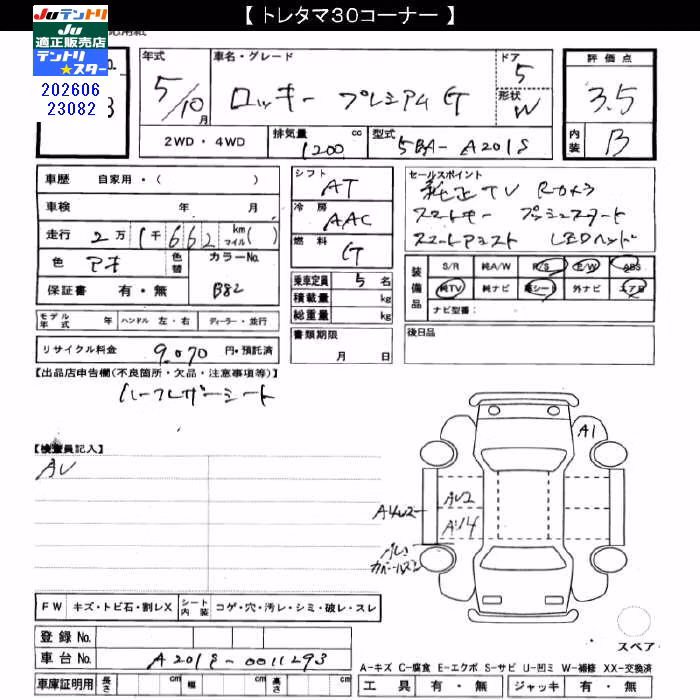 【 トレタマ30コーナー 】
Juテントリ
Ju
適正販売店
テントリ
★スター
202606
23082
年式
5/10月
車名・グレード
ロッキー プレミアムG
ドア
5
形状
W
評価点
3.5
内装
B
2WD・4WD
排気量
1200 cc
型式
5BA-A201S
車歴 自家用・( )
車検 年 月
走行 2万1千662 km マイル( )
色 アオ
色替
カラーNo.
B82
保証書 有・無
シフト
AT
冷房
AAC
燃料
G
乗車定員 5名
積載量 kg
総重量 kg
セールスポイント
純正TV Rカメラ
スマートキー プッシュスタート
スマートアシスト LEDヘッド
装備品
S/R 純A/W P/S P/W ABS
純TV 純ナビ 革シート 外ナビ エアB
ナビ型番:
モデル年式 年 ハンドル 左・右 ディーラー・並行
書類期限
月 日
後日品
リサイクル料金 9,070 円・預託済
【出品店申告欄(不良箇所・欠品・注意事項等)】
ハーフレザーシート
【検査員記入】
AU
A1
AU2
AU4
FW キズ・トビ石・割レX
シート内装 コゲ・穴・汚レ・シミ・破レ・スレ
登録No.
車台No. A201S-0011293
スペア
A-キズ C-腐食 E-エクボ S-サビ U-凹ミ W-補修 XX-交換済
車庫証明用 長さ cm 幅 cm 高さ cm
工具 有・無 ジャッキ 有・無